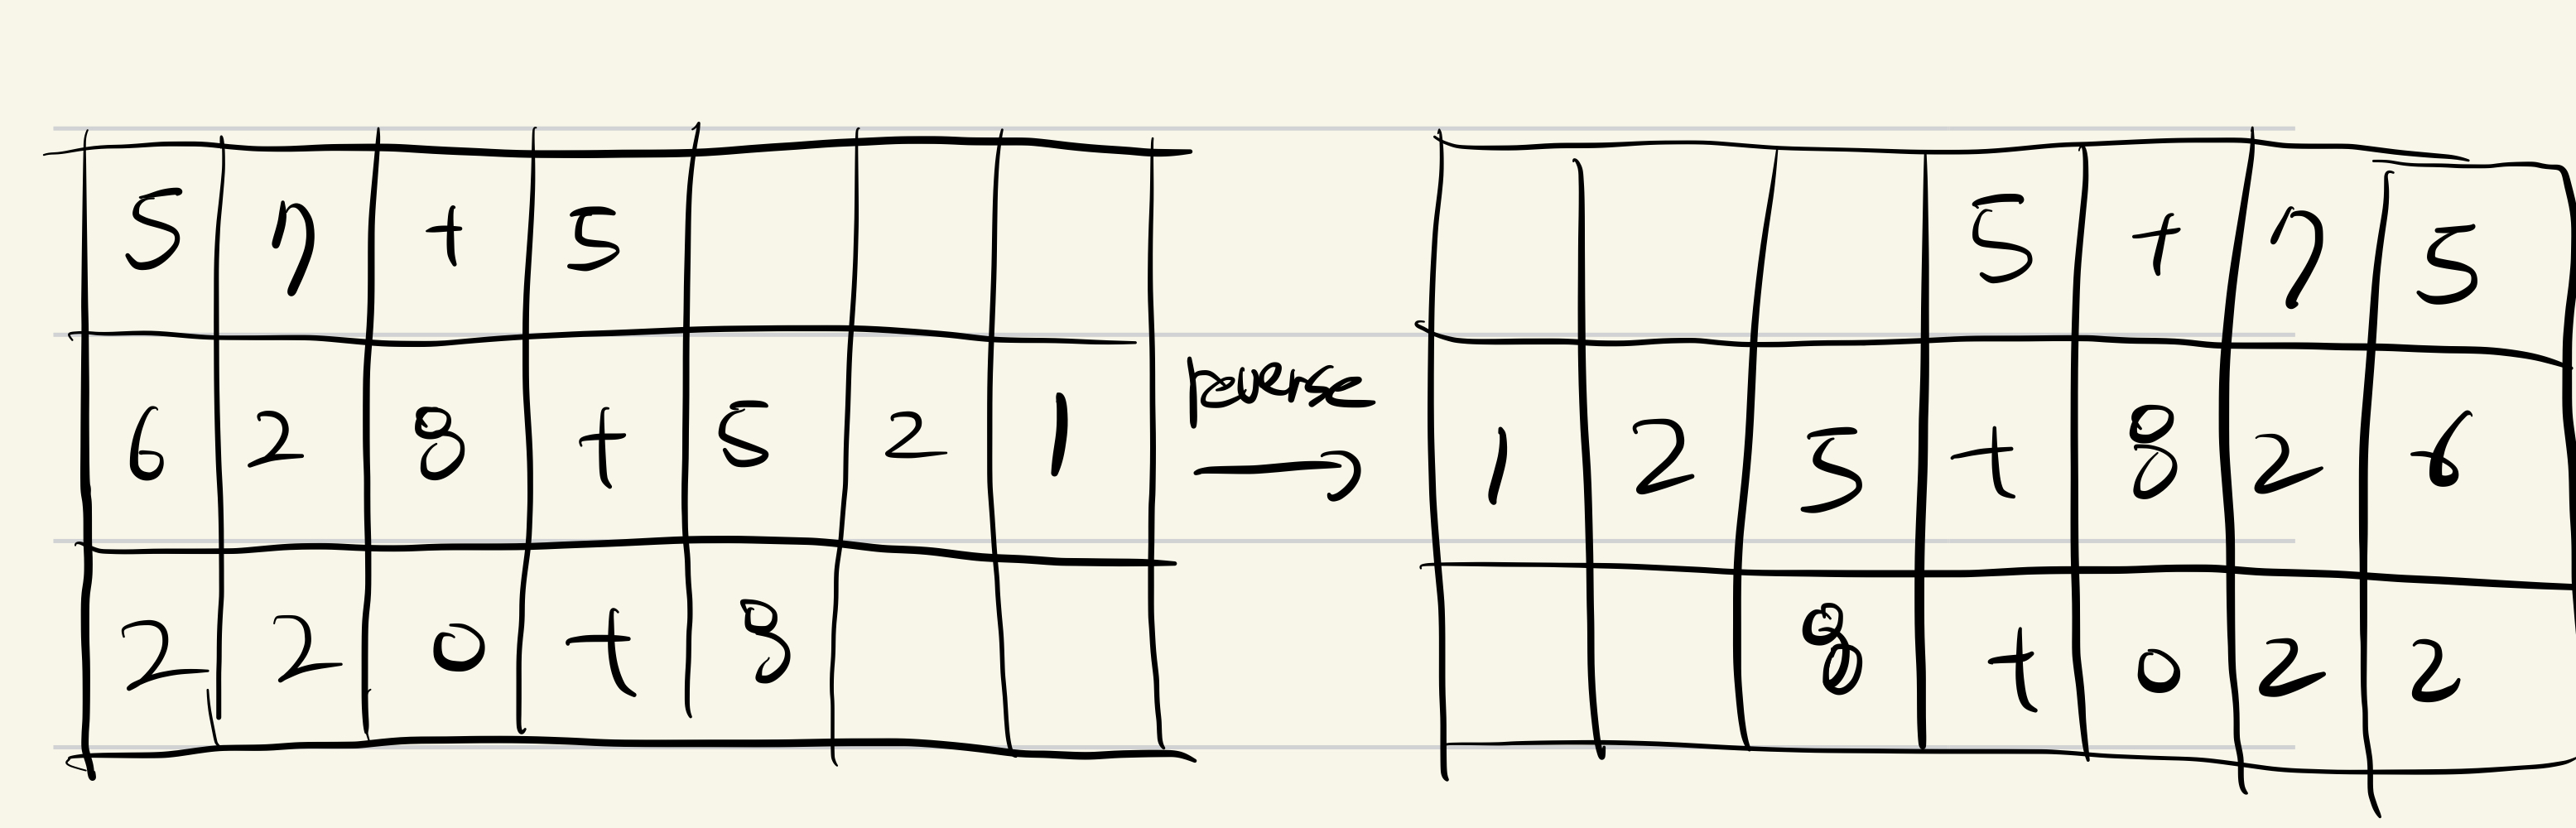 5 7 + 5
6 2 8 + 5 2 1
2 2 0 + 8
reverse
5 + 7 5
1 2 5 + 8 2 6
8 + 0 2 2